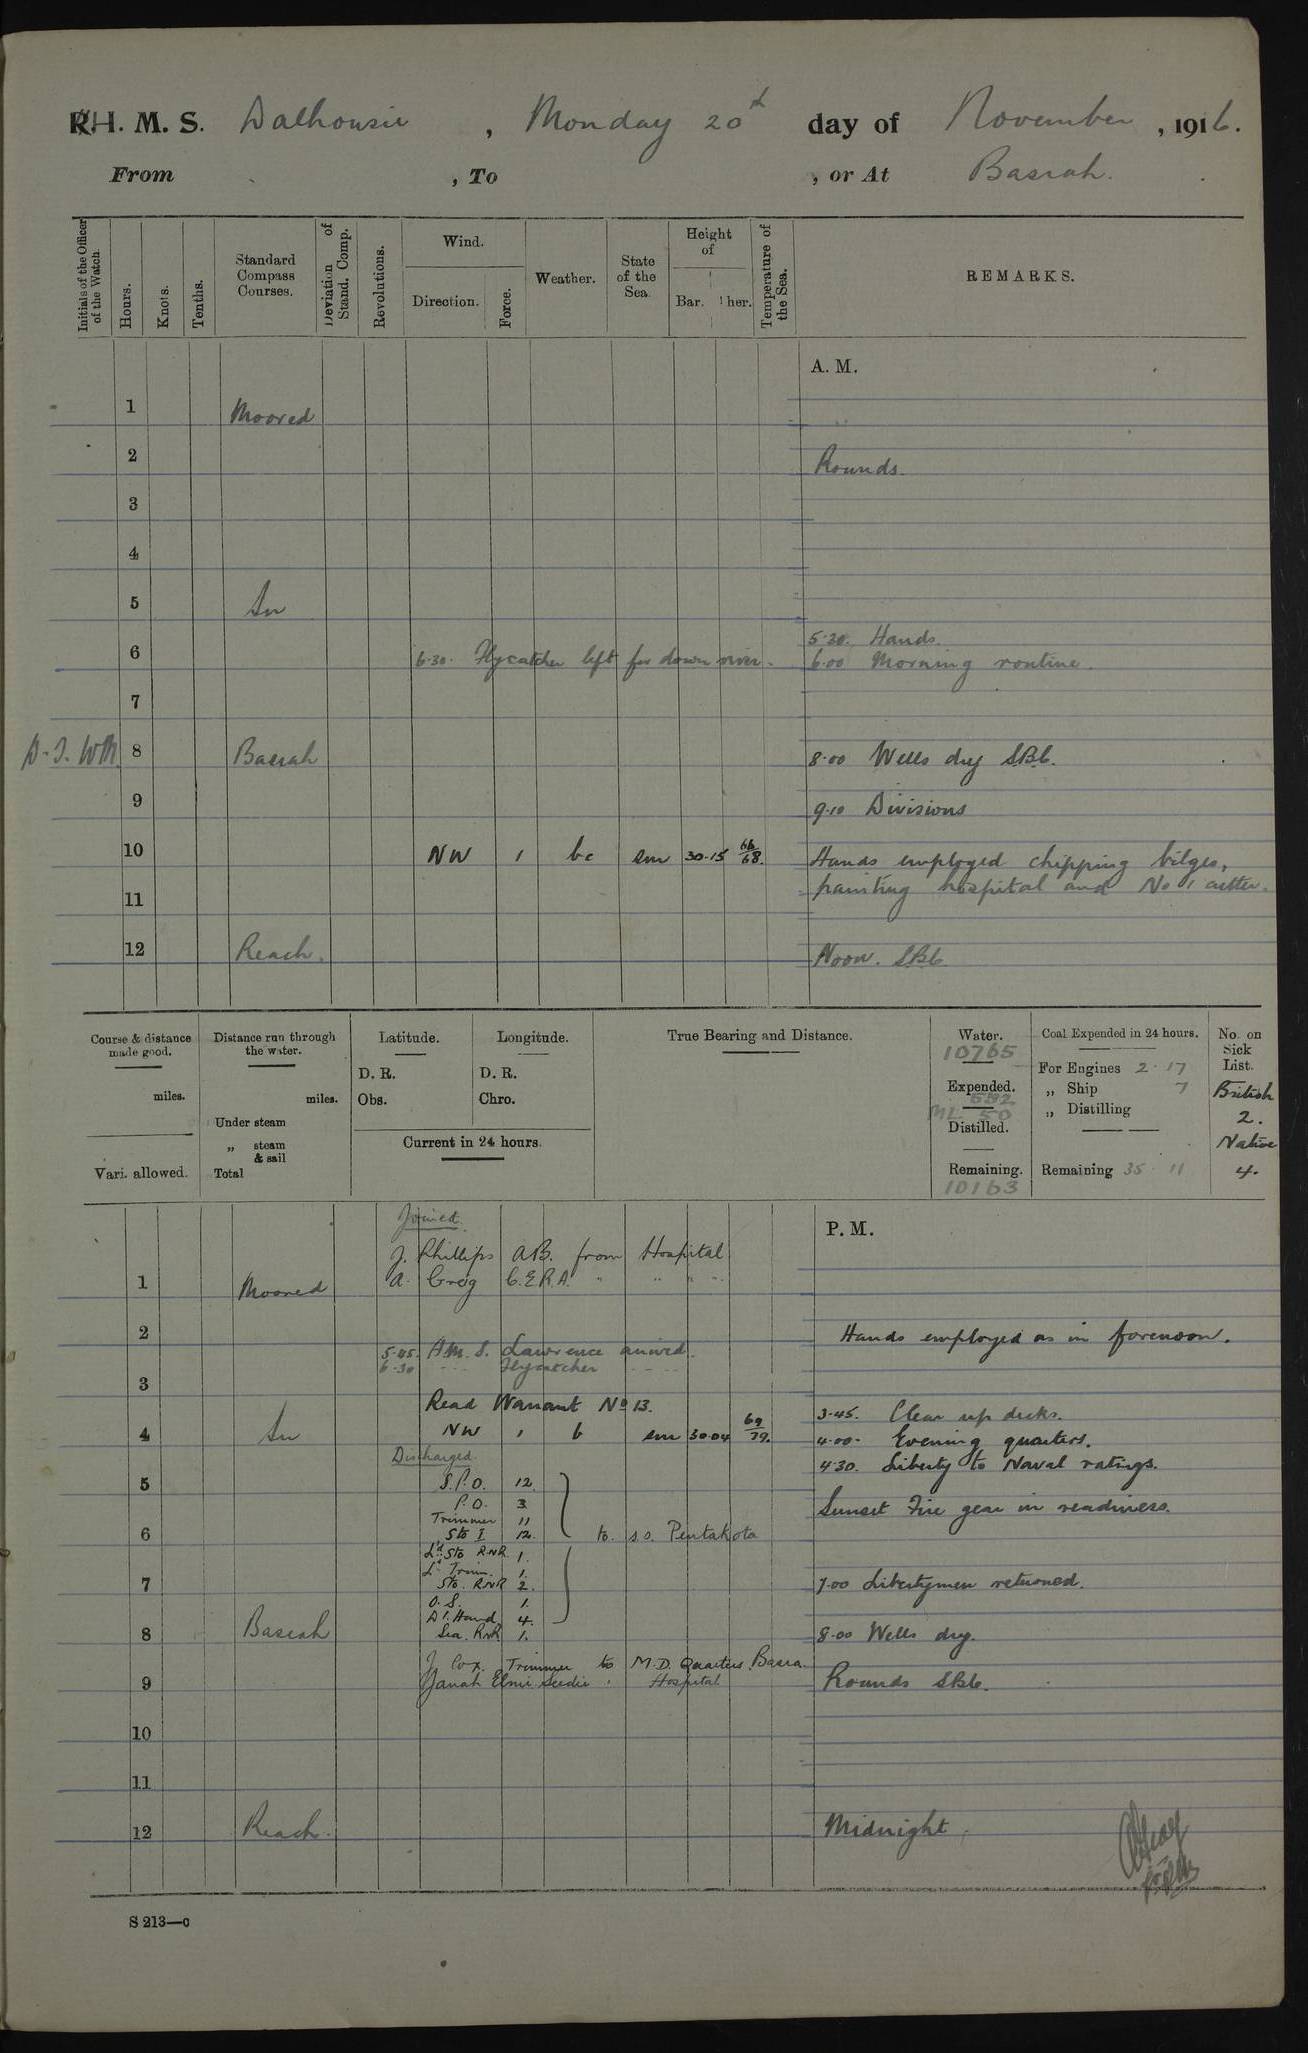 H. M. S. Dalhousie, Monday 20th day of November, 1916.
From , To , or At Basrah.
Initials of the Officer of the Watch.
Hours.
Knots.
Tenths.
Standard Compass Courses.
Deviation of Stand. Comp.
Revolutions.
Wind.
Direction.
Force.
Weather.
State of the Sea.
Height of
Bar. Ther.
Temperature of the Sea.
REMARKS.
A. M.
1 Moored
2 Rounds.
3
4
5 In
5·20. Hands.
6 6·30. Flycatcher left for down river. 6·00 Morning routine.
7
8 Basrah 8·00 Wells dry
9 9·10 Divisions
10 NW 1 bc sm 30·15 66/68. Hands employed chipping bilges,
11 painting hospital and No 1 cutter.
12 Reach. Noon.
Course & distance made good.
miles.
Vari. allowed.
Distance run through the water.
miles.
Under steam
„ steam & sail
Total
Latitude.
D. R.
Obs.
Longitude.
D. R.
Chro.
Current in 24 hours.
True Bearing and Distance.
Water.
10765
Expended.
552
ML 50
Distilled.
Remaining.
10163
Coal Expended in 24 hours.
For Engines 2·17
„ Ship 7
„ Distilling
Remaining 35·11
No. on Sick List.
British
2.
Native
4.
P. M.
Joined.
J. Phillips A.B. from Hospital
1 Moored A. Greig C.E.R.A. " " " "
2 Hands employed as in forenoon.
5·45. H.M.S. Lawrence arrived.
6·30 - - - Flycatcher - - - -
3
Read Warrant No 13.
3·45. Clear up decks.
4 In NW 1 b sm 30·04 69/79. 4·00· Evening quarters.
Discharged.
4·30. Liberty to Naval ratings.
5 S.P.O. 12.
P.O. 3. Sunset Fire gear in readiness.
Trimmer 11
6 Sto I 12. to s.s. Pentakota
Ld Sto RNR 1.
L. Trim. 1.
7 Sto. RNR 2. 7·00 Libertymen returned.
O.S. 1.
Dk. Hand 4.
8 Basrah Sea. RNR 1. 8·00 Wells dry.
J. Cox. Trimmer to M.D. Quarters Basra.
9 Hospital Rounds
10
11
12 Reach. Midnight
S 213—c